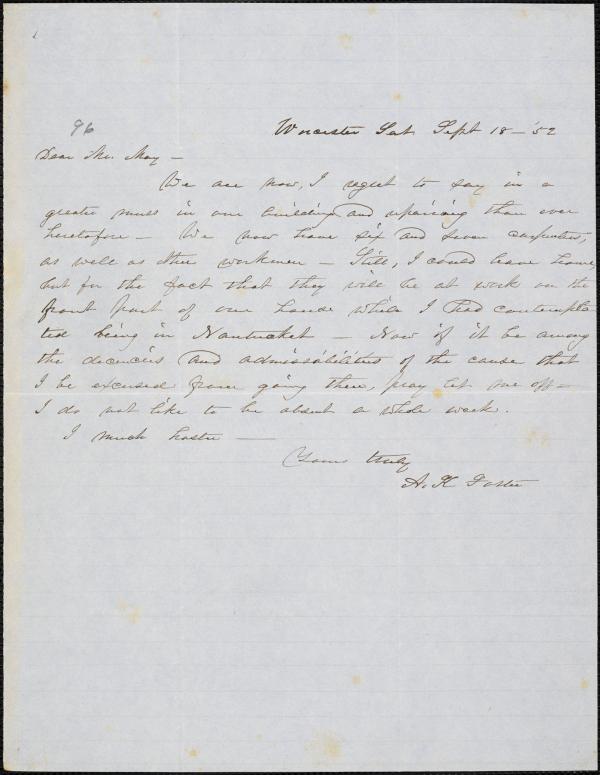 96
Worcester Sat. Sept 18 - '52
Dear Mr. May -
We are now, I regret to say in a
greater muss in our building and repairing than ever
heretofore - We now have six and seven carpenters,
as well as other workmen - Still, I could leave home,
but for the fact that they will be at work on the
front part of our house while I had contempla-
ted being in Nantucket - Now if it be among
the decencies and admissibilities of the cause that
I be excused from going there, pray let me off -
I do not like to be absent a whole week.
I much haste -
Yours truly
A. K. Foster